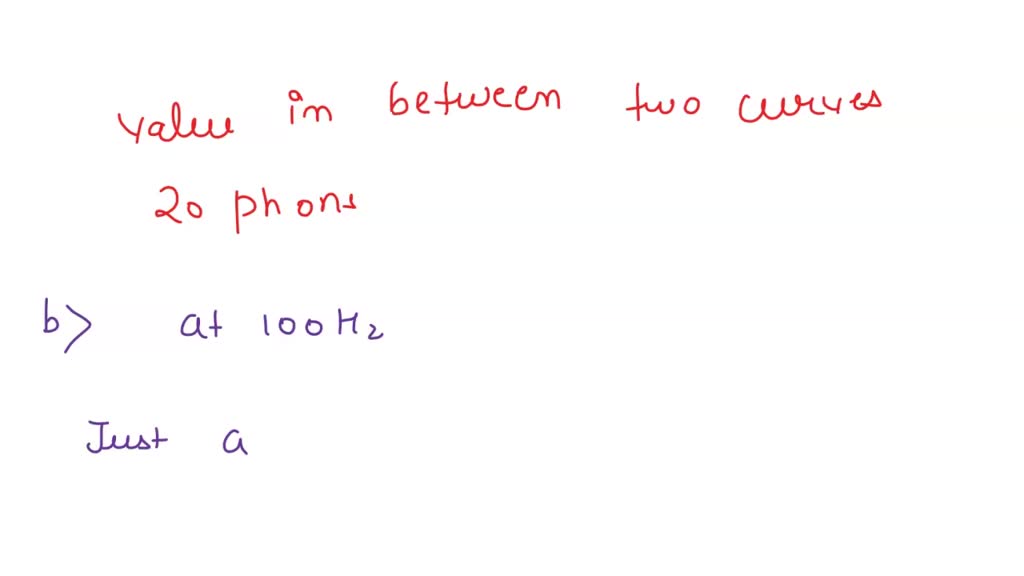 value in between two curves
20 phons
b> at 100Hz
Just a